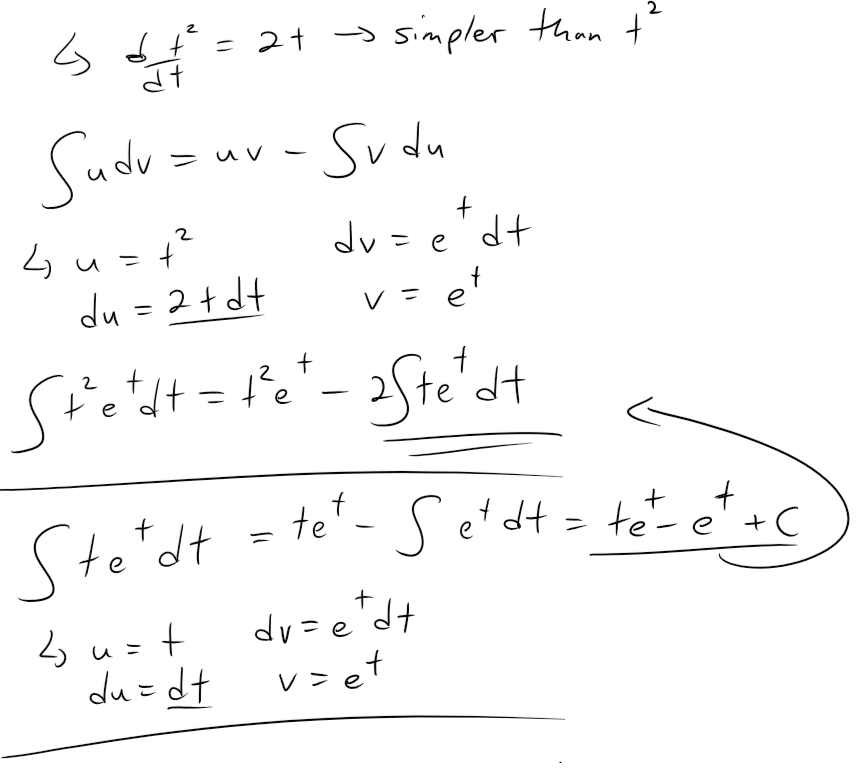 ↳ d t²/dt = 2t → simpler than t²
∫u dv = uv − ∫v du
↳ u = t² dv = eᵗ dt
du = 2t dt v = eᵗ
∫t² eᵗ dt = t² eᵗ − 2∫t eᵗ dt
∫t eᵗ dt = t eᵗ − ∫ eᵗ dt = t eᵗ − eᵗ + C
↳ u = t dv = eᵗ dt
du = dt v = eᵗ